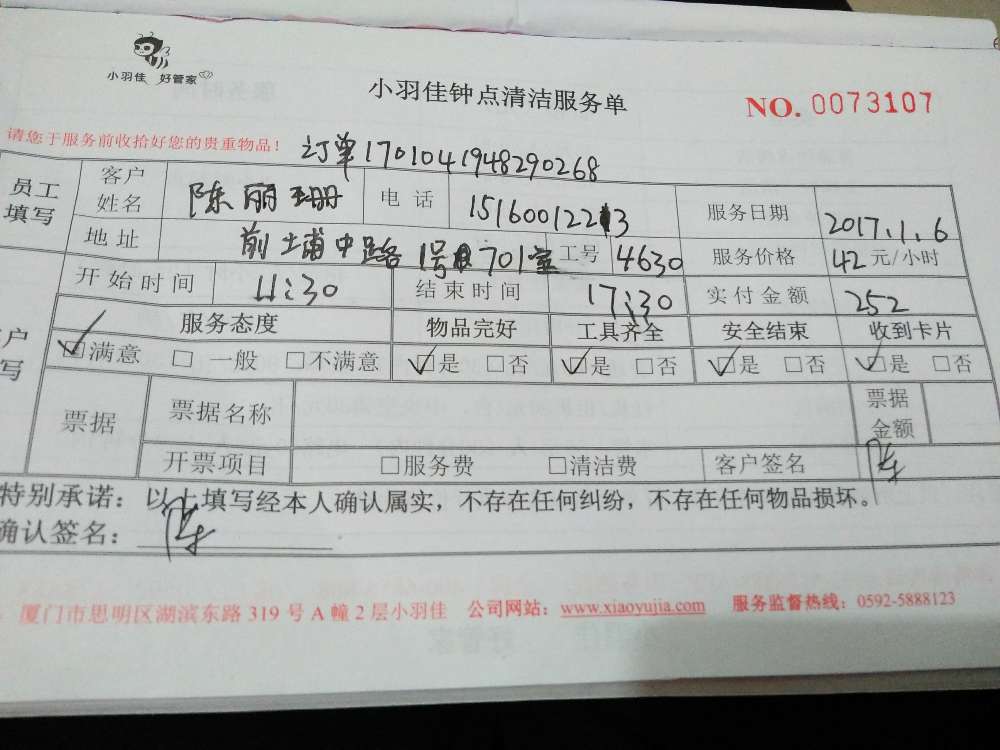 小羽佳 好管家
小羽佳钟点清洁服务单
NO. 0073107
请您于服务前收拾好您的贵重物品！
订单1701041948290268
员工填写 客户姓名 陈丽珊 电话 15160012213 服务日期 2017.1.6
地址 前埔中路1号 701室 工号 4630 服务价格 42元/小时
开始时间 11:30 结束时间 17:30 实付金额 252
户写 服务态度 物品完好 工具齐全 安全结束 收到卡片
☑满意 □一般 □不满意 ☑是 □否 ☑是 □否 ☑是 □否 ☑是 □否
票据 票据名称 票据金额
开票项目 □服务费 □清洁费 客户签名 陈
特别承诺：以上填写经本人确认属实，不存在任何纠纷，不存在任何物品损坏。
确认签名：陈
厦门市思明区湖滨东路319号A幢2层小羽佳 公司网站：www.xiaoyujia.com 服务监督热线：0592-5888123